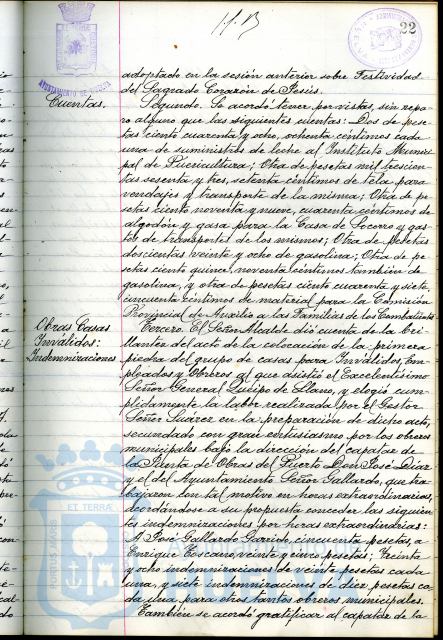 22
AYUNTAMIENTO DE HUELVA
adoptado en la sesión anterior sobre Festividad
del Sagrado Corazón de Jesús.
Cuentas.
Segundo. Se acordó tener por vistas, sin repa-
ro alguno que las siguientes cuentas: Dos de pese-
tas ciento cuarenta y ocho, ochenta céntimos cada
una de suministros de leche al Instituto Munici-
pal de Puericultura; Otra de pesetas mil trescien-
tas sesenta y tres, setenta céntimos de tela para
vendajes y transporte de la misma; Otra de pe-
setas ciento noventa y nueve, cuarenta céntimos de
algodón y gasa para la Casa de Socorro y gas-
tos de transporte de los mismos; Otra de pesetas
doscientas veinte y ocho de gasolina; Otra de pe-
setas ciento quince, noventa céntimos tambien de
gasolina, y otra de pesetas ciento cuarenta y siete,
cincuenta céntimos de material para la Comisión
Provincial de Auxilio a las Familias de los Combatientes.
Obras Casas
Inválidos:
Indemnizaciones
Tercero. El Señor Alcalde dió cuenta de la bri-
llantez del acto de la colocación de la primera
piedra del grupo de casas para Inválidos, Em-
pleados y Obreros al que asistió el Excelentísimo
Señor General Queipo de Llano, y elogió cum-
plidamente la labor realizada por el Gestor
Señor Suárez en la preparación de dicho acto,
secundado con gran entusiasmo por los obreros
municipales bajo la dirección del capataz de
la Junta de Obras del Puerto Don José Díaz
y el del Ayuntamiento Señor Gallardo, que tra-
bajaron con tal motivo en horas extraordinarias,
acordándose a su propuesta conceder las siguien-
tes indemnizaciones por horas extraordinarias:
A José Gallardo Garrido, cincuenta pesetas, a
Enrique Toscano, veinte y cinco pesetas; Treinta
y ocho indemnizaciones de veinte pesetas cada
una, y siete indemnizaciones de diez pesetas ca-
da una para otros tantos obreros municipales.
Tambien se acordó gratificar al capataz de la
PORTUS MARIS ET TERRÆ